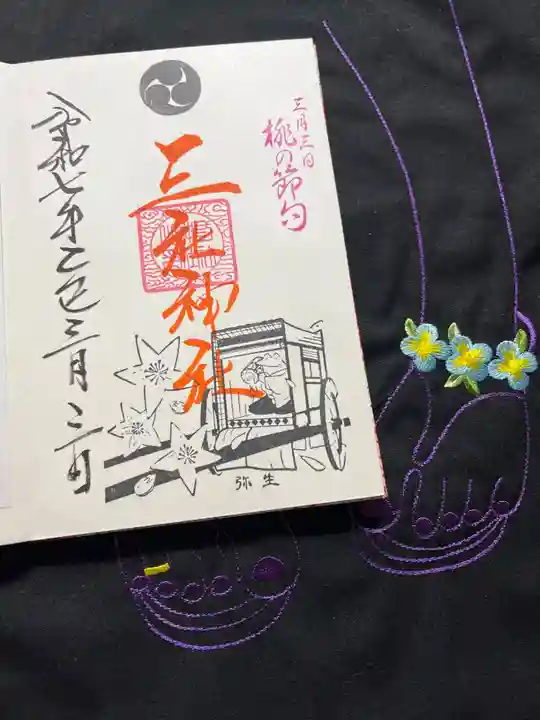 三月三日
桃の節句
三龍神社
令和七年乙巳三月三日
弥生